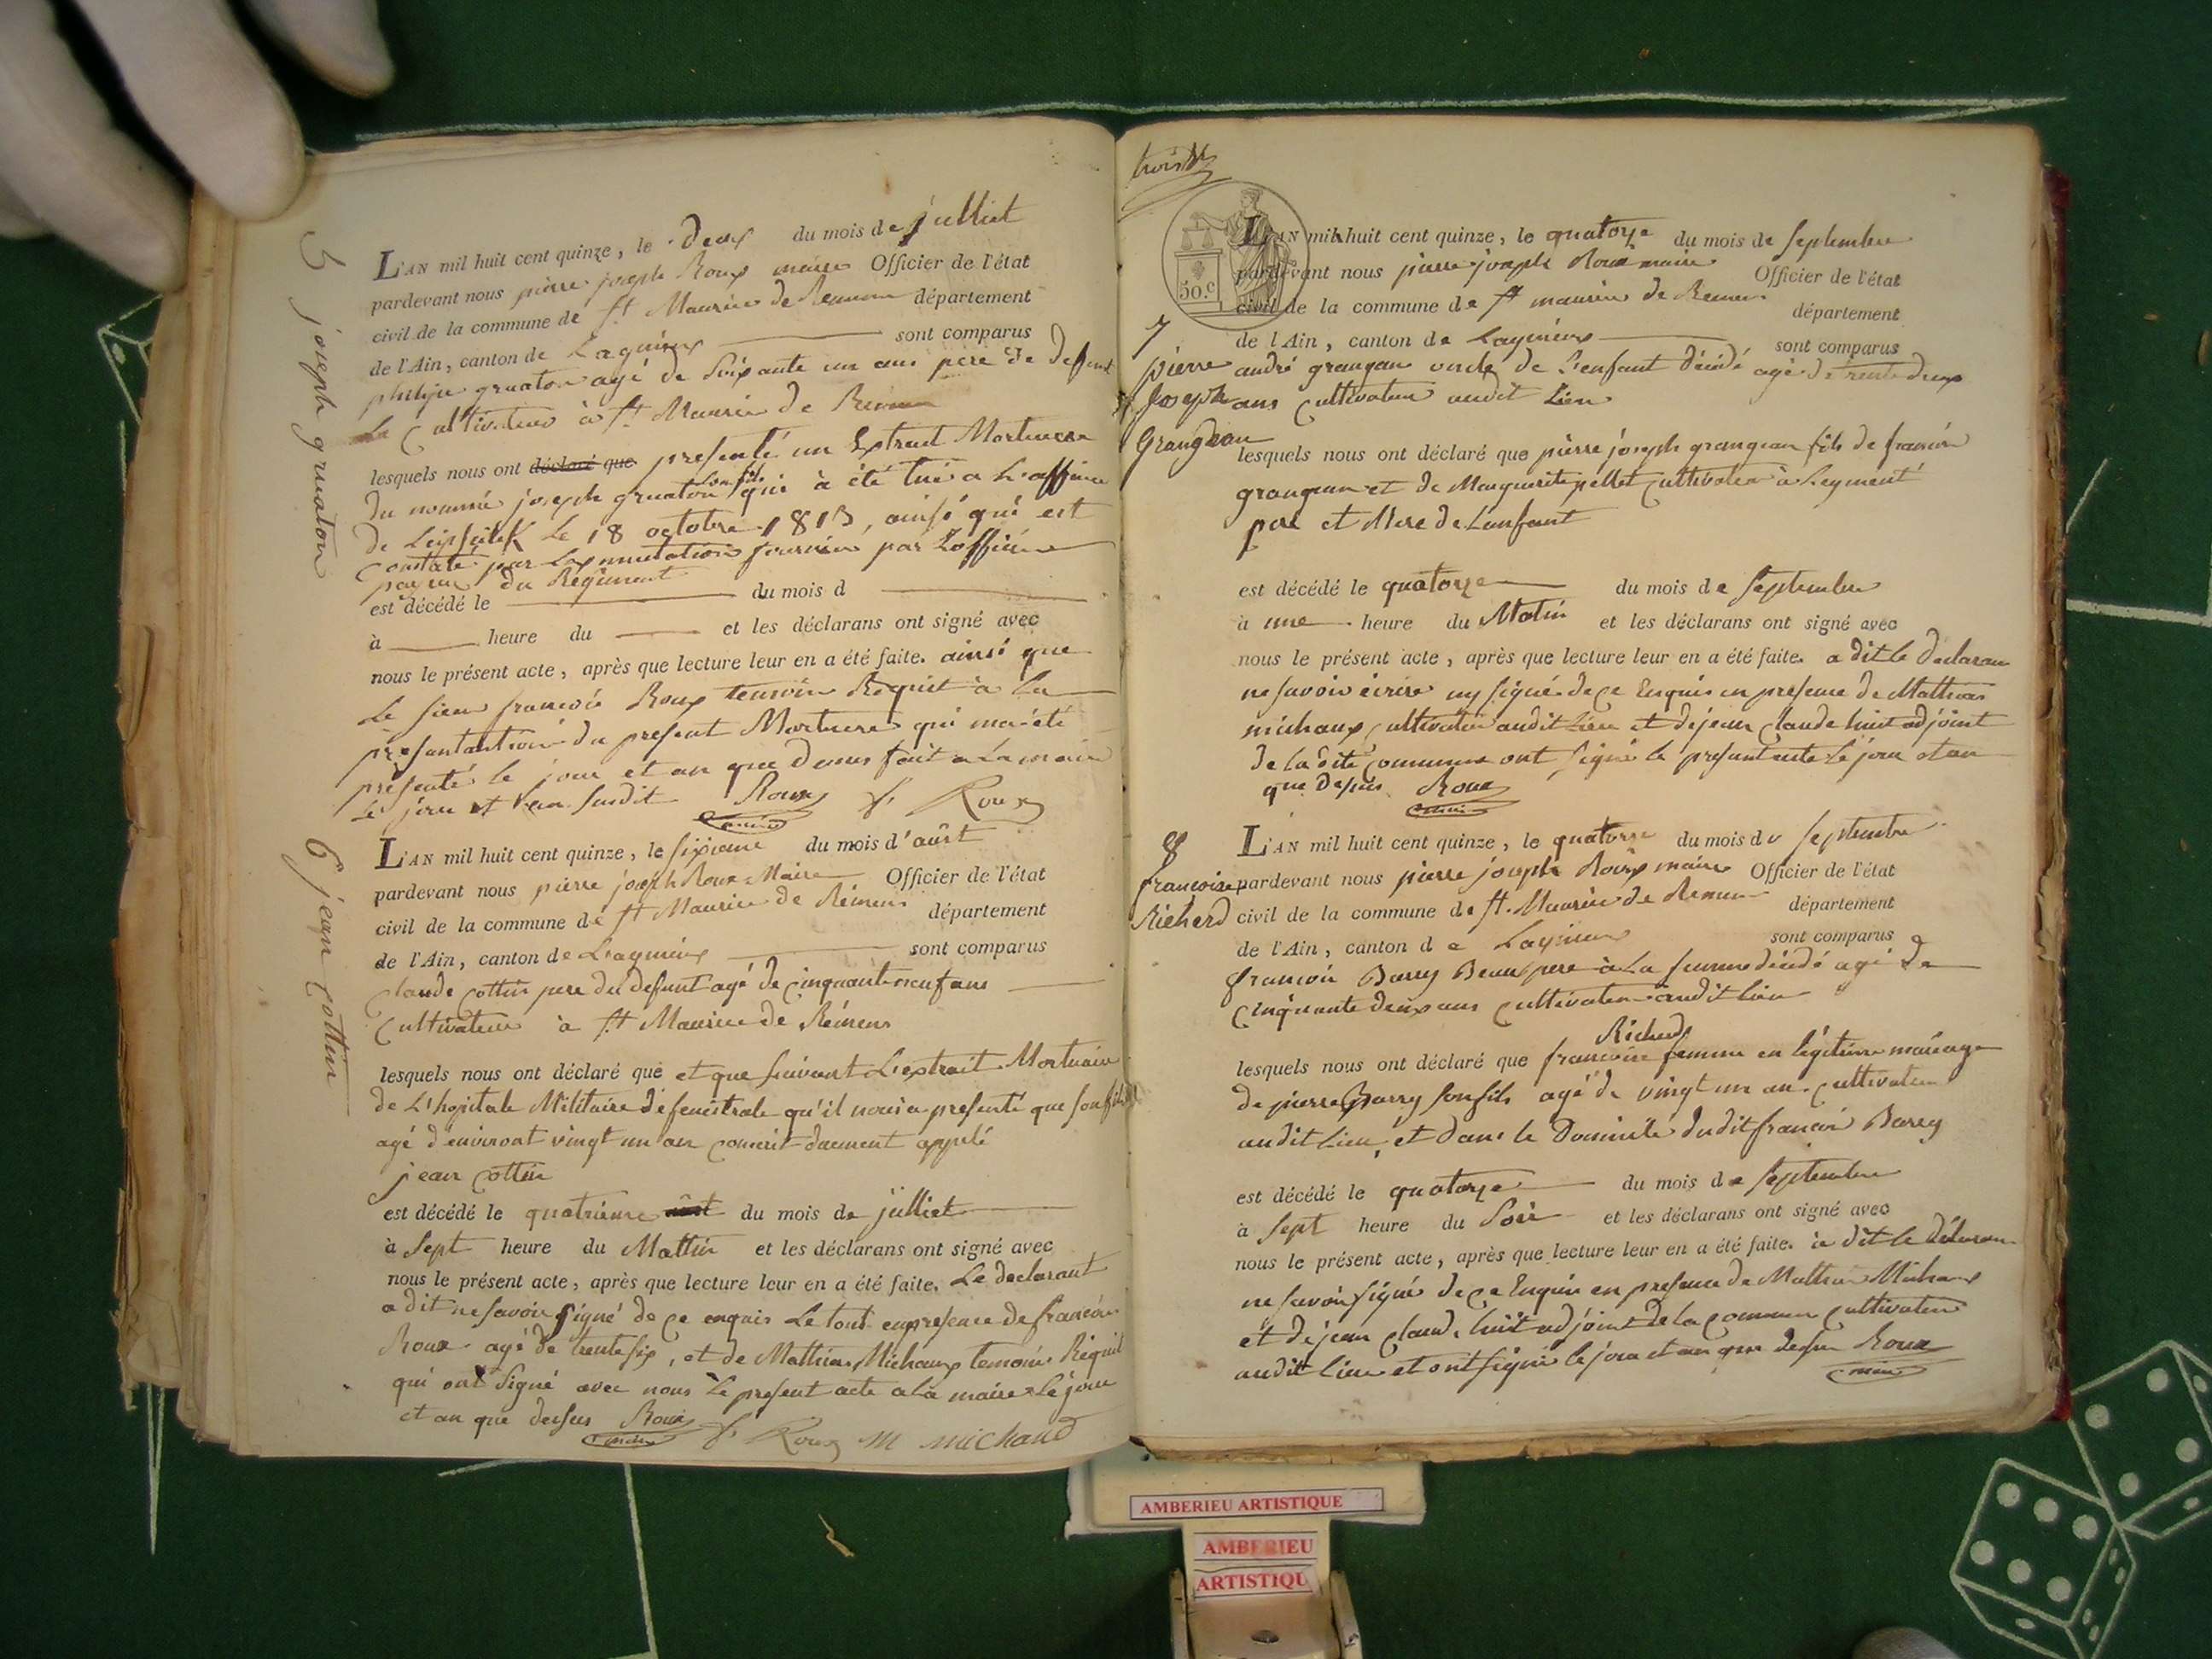 5 joseph gruaton
L'AN mil huit cent quinze, le deux du mois de julliet
pardevant nous pierre joseph Roux maire Officier de l'état
civil de la commune de st Maurice de Remens département
de l'Ain, canton de Lagnieux sont comparus
philipe gruaton agé de Soixante un ans pere de defunt
Cultivateur à st Maurice de Remens
lesquels nous ont déclaré que presenté un Extrait Mortuere
du nommé joseph gruaton son fils qui à été tué a L'affaire
de Leipsick Le 18 octobre 1813, ainsi qui est
constaté par La mutation fournie par Lofficier
payeur du Régiment
est décédé le du mois d
à heure du et les déclarans ont signé avec
nous le présent acte, après que lecture leur en a été faite. ainsi que
Le sieur francois Roux temoin Requit à la
presantation du present Mortuere qui ma été
présenté le jour et an que dessus fait a La mairie
Le jour et l'an susdit Roux f. Roux
maire
6 jean Cottin
L'AN mil huit cent quinze, le sixieme du mois d'aûst
pardevant nous pierre joseph Roux Maire Officier de l'état
civil de la commune de st Maurice de Rémens département
de l'Ain, canton de Lagnieux sont comparus
Claude Cottin pere du defunt agé de cinquante neuf ans
Cultivateur à st Maurice de Rémens
lesquels nous ont déclaré que et que suivant L'extrait Mortuaire
de L'hopitale Militaire de qu'il nous a presenté que son fils
agé d'environt vingt un an conscrit duement appelé
jean Cottin
est décédé le quatrieme du mois de julliet
à Sept heure du Mattin et les déclarans ont signé avec
nous le présent acte, après que lecture leur en a été faite. Le declarant
a dit ne savoir signé de ce enquis Le tout en presence de francois
Roux agé de trente six, et de Mathieu Michaux temoins Réquit
qui ont Signé avec nous le present acte a la maire Le jour
et an que dessus Roux f. Roux M michaud
maire
trois
50.c
7
pierre
Joseph
Grangean
L'AN mil huit cent quinze, le quatorze du mois de septembre
pardevant nous pierre joseph Roux maire Officier de l'état
civil de la commune de st maurice de Remens département
de l'Ain, canton de Lagnieux sont comparus
andré grangean oncle de L'enfant décédé agé de trente deux
ans Cultivateur audit Lieu
lesquels nous ont déclaré que pierre joseph grangean fils de francois
grangean et de Marguerite pellet Cultivateur à Leyment
pere et Mere de Lenfant
est décédé le quatorze du mois de septembre
à une heure du Matin et les déclarans ont signé avec
nous le présent acte, après que lecture leur en a été faite. a dit le declaran
ne savoir écrire ny signé de ce Enquis en presence de Mathieu
michaux Cultivateur audit Lieu et de jean Claude huit adjoint
de la dite Commune ont signé le present acte le jour et an
que Dessus Roux
maire
8
francoise
Richerd
L'AN mil huit cent quinze, le quatorze du mois de septembre
pardevant nous pierre joseph Roux maire Officier de l'état
civil de la commune de st. Maurice de Remens département
de l'Ain, canton de Lagnieux sont comparus
francois Barry Beaupere à La femme décédé agé de
Cinquante deux ans Cultivateur audit lieu
Richerd
lesquels nous ont déclaré que francoise femme en légitime mariage
de pierre Barry son fils agé de vingt un an Cultivateur
audit Lieu, et dans le Domicile dudit francois Barry
est décédé le quatorze du mois de septembre
à Sept heure du Soir et les déclarans ont signé avec
nous le présent acte, après que lecture leur en a été faite. a dit le déclaran
ne savoir signé de ce Enquis en presence de Mathieu Michaux
et de jean Claude huit adjoint de la commune Cultivateur
audit Lieu et ont signé le jour et an que dessu Roux
maire
AMBERIEU ARTISTIQUE
AMBERIEU
ARTISTIQU